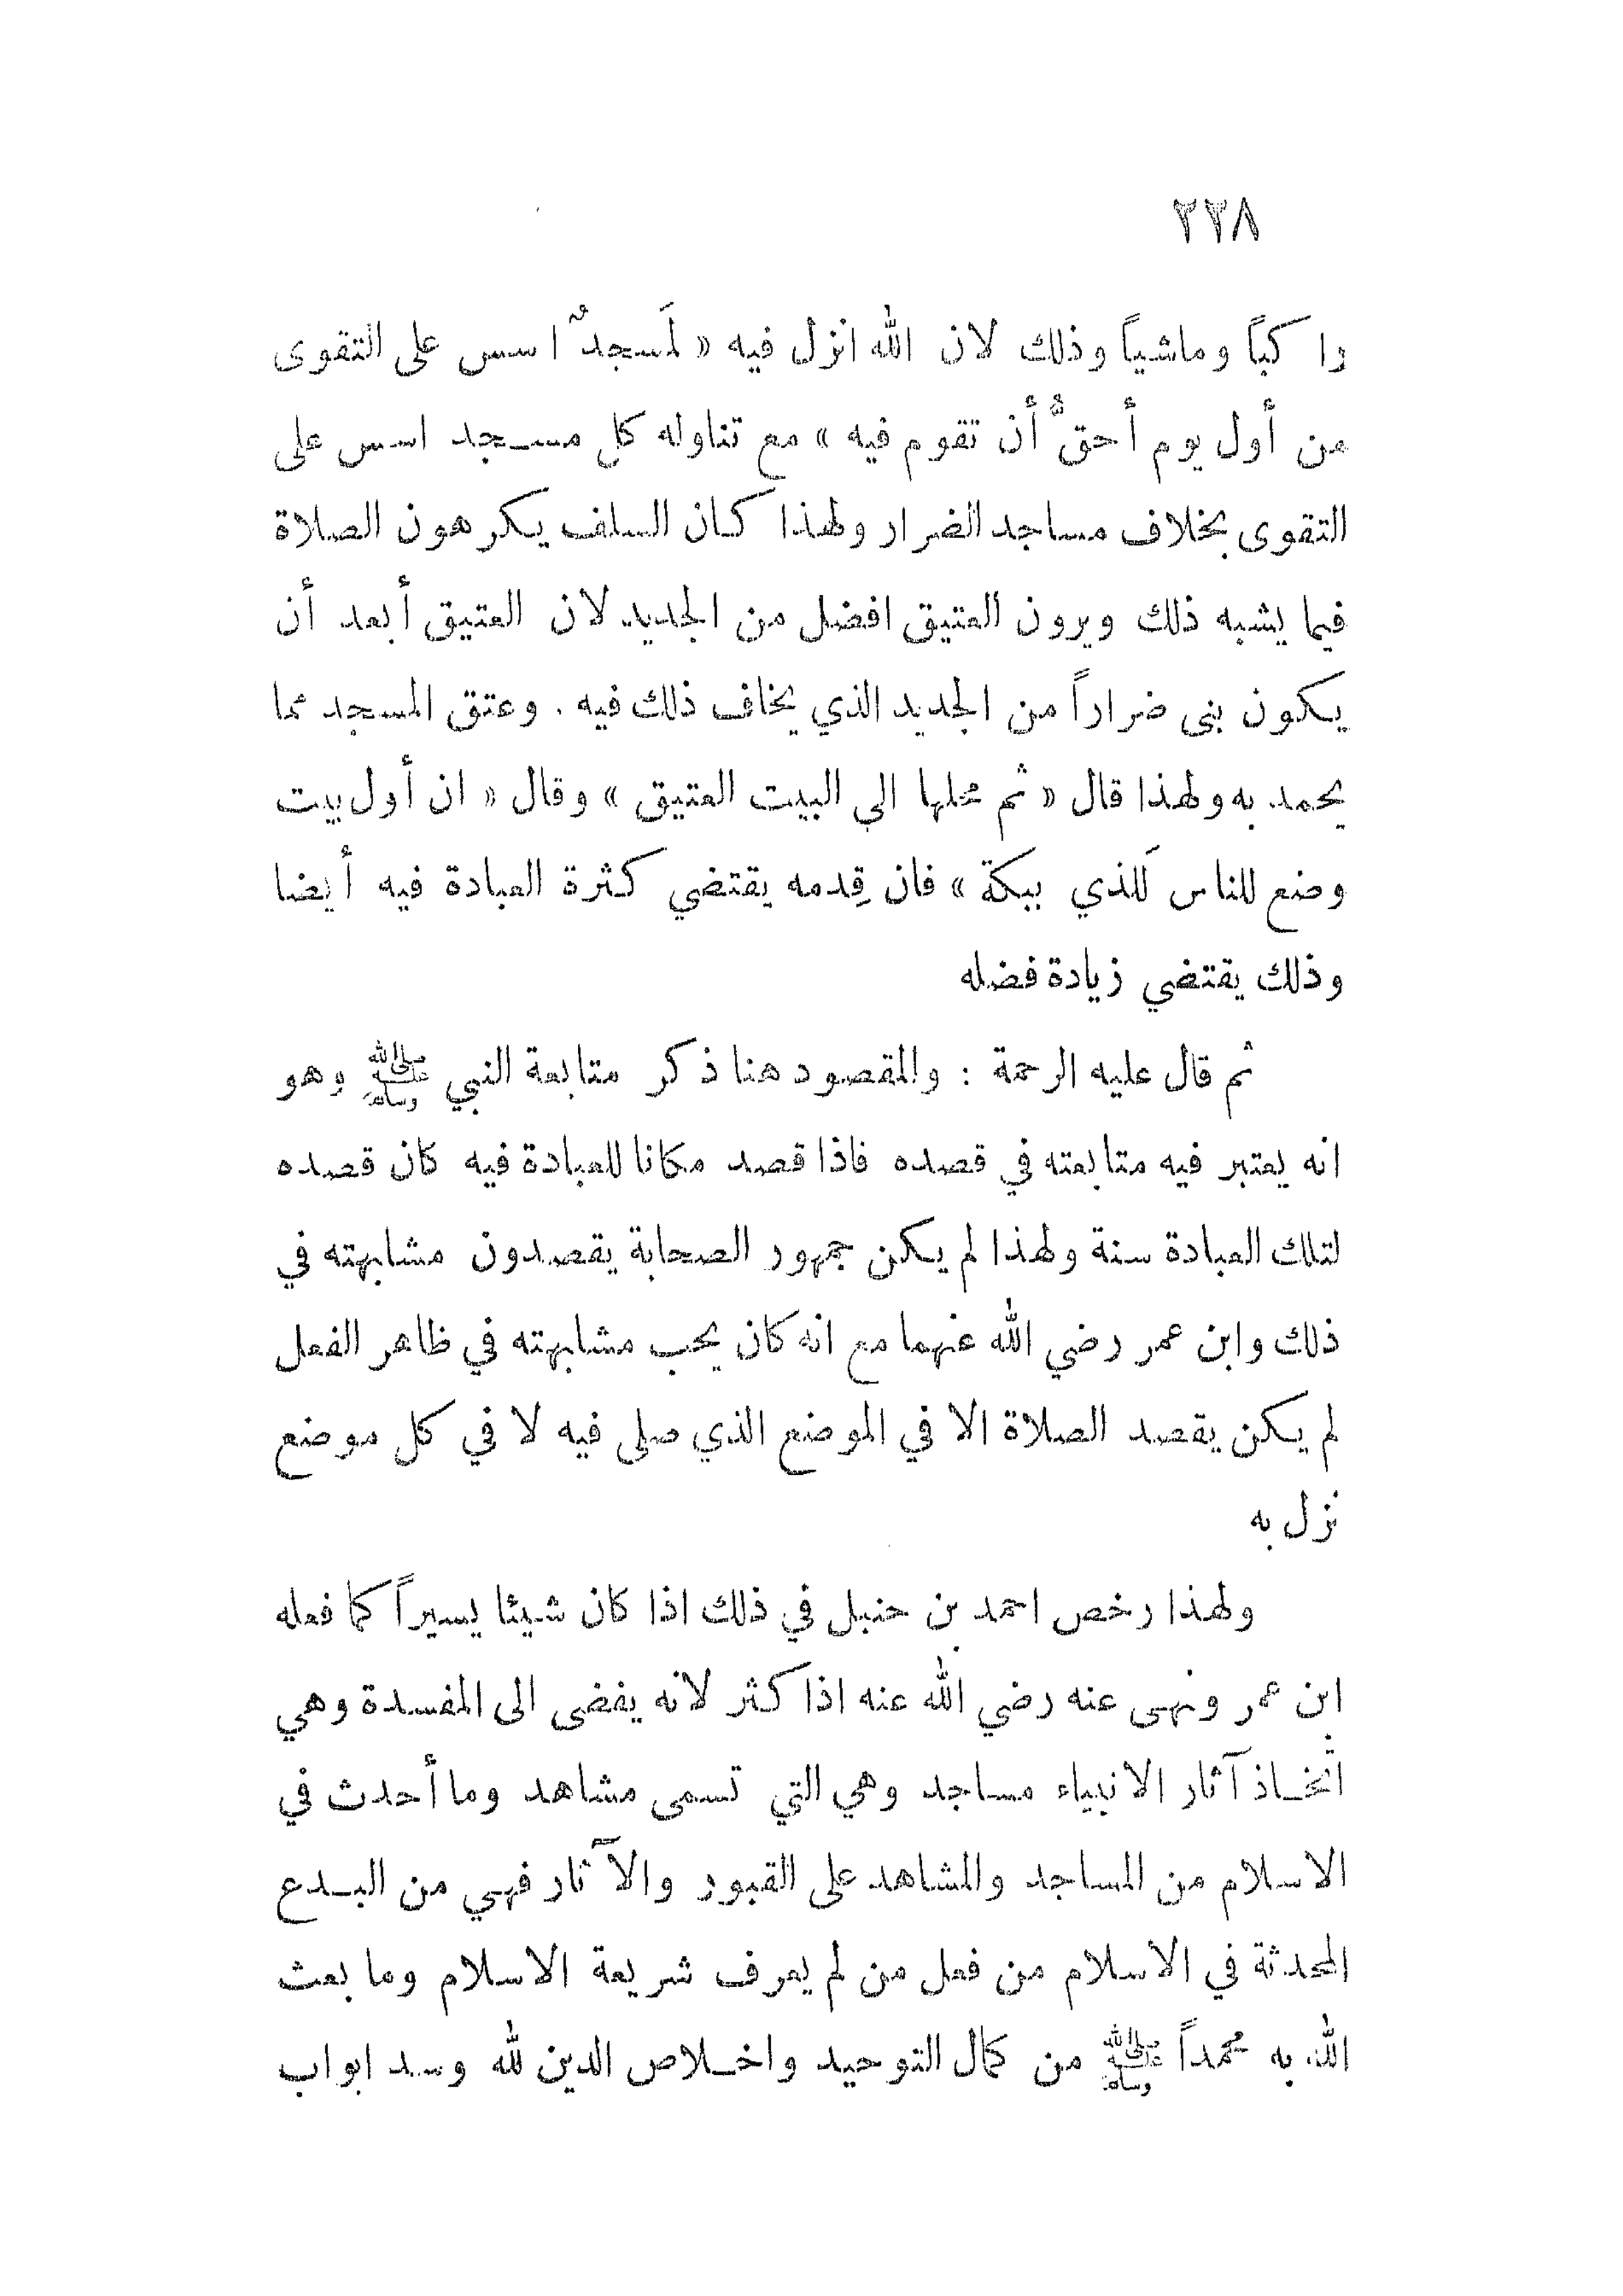 ٢٢٨
راكباً وماشياً وذلك لان الله انزل فيه « لَمسجدٌ اسس على التقوى
من أول يوم أحقُّ أن تقوم فيه » مع تناوله كل مسجد اسس على
التقوى بخلاف مساجد الضرار ولهذا كان السلف يكرهون الصلاة
فيما يشبه ذلك ويرون العتيق افضل من الجديد لان العتيق أبعد أن
يكون بنى ضراراً من الجديد الذي يخاف ذلك فيه . وعتق المسجد مما
يحمد به ولهذا قال « ثم محلها الى البيت العتيق » وقال « ان أول بيت
وضع للناس لَلذي ببكة » فان قِدمه يقتضي كثرة العبادة فيه أيضا
وذلك يقتضي زيادة فضله
ثم قال عليه الرحمة : والمقصود هنا ذكر متابعة النبي ﷺ وهو
انه يعتبر فيه متابعته في قصده فاذا قصد مكانا للعبادة فيه كان قصده
لتلك العبادة سنة ولهذا لم يكن جمهور الصحابة يقصدون مشابهته في
ذلك وابن عمر رضي الله عنهما مع انه كان يحب مشابهته في ظاهر الفعل
لم يكن يقصد الصلاة الا في الموضع الذي صلى فيه لا في كل موضع
نزل به
ولهذا رخص احمد بن حنبل في ذلك اذا كان شيئا يسيراً كما فعله
ابن عمر ونهى عنه رضي الله عنه اذا كثر لانه يفضى الى المفسدة وهي
اتخاذ آثار الانبياء مساجد وهي التي تسمى مشاهد وما أحدث في
الاسلام من المساجد والمشاهد على القبور والآثار فهي من البدع
المحدثة في الاسلام من فعل من لم يعرف شريعة الاسلام وما بعث
الله به محمداً ﷺ من كمال التوحيد واخلاص الدين لله وسد ابواب